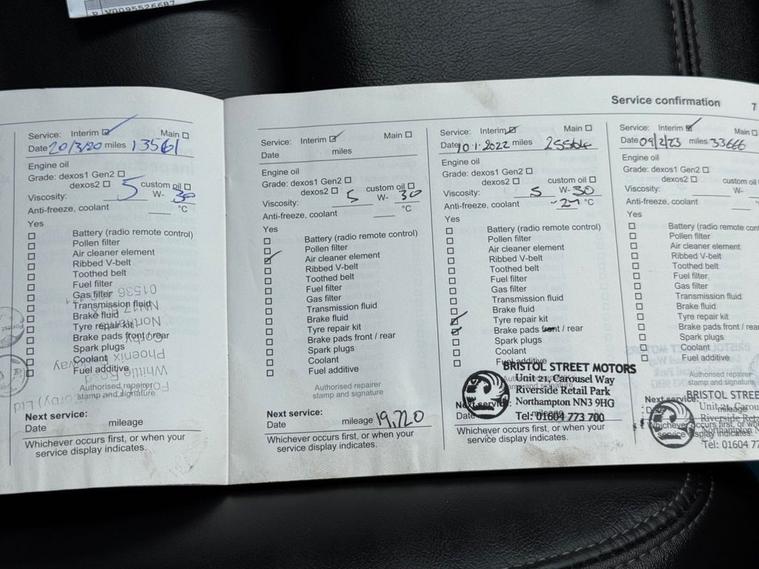 Service confirmation 7
Service: Interim ☑ Main ☐
Date 20/3/20 miles 13561
Engine oil
Grade: dexos1 Gen2 ☐
dexos2 ☐ custom oil ☐
Viscosity: 5 W- 30
Anti-freeze, coolant °C
Yes
☐ Battery (radio remote control)
☐ Pollen filter
☐ Air cleaner element
☐ Ribbed V-belt
☐ Toothed belt
☐ Fuel filter
☐ Gas filter
☐ Transmission fluid
☐ Brake fluid
☐ Tyre repair kit
☐ Brake pads front / rear
☐ Spark plugs
☐ Coolant
☐ Fuel additive
Authorised repairer
stamp and signature
01536
Phoenix
Next service:
Date mileage
Whichever occurs first, or when your
service display indicates.
Service: Interim ☑ Main ☐
Date miles
Engine oil
Grade: dexos1 Gen2 ☐
dexos2 ☐ custom oil ☐
Viscosity: 5 W- 30
Anti-freeze, coolant °C
Yes
☐ Battery (radio remote control)
☐ Pollen filter
☑ Air cleaner element
☐ Ribbed V-belt
☐ Toothed belt
☐ Fuel filter
☐ Gas filter
☐ Transmission fluid
☐ Brake fluid
☐ Tyre repair kit
☐ Brake pads front / rear
☐ Spark plugs
☐ Coolant
☐ Fuel additive
Authorised repairer
stamp and signature
Next service:
Date mileage 19,720
Whichever occurs first, or when your
service display indicates.
Service: Interim ☑ Main ☐
Date 10.1.2022 miles
Engine oil
Grade: dexos1 Gen2 ☐
dexos2 ☐ custom oil ☐
Viscosity: 5 W-30
Anti-freeze, coolant °C
Yes
☐ Battery (radio remote control)
☐ Pollen filter
☐ Air cleaner element
☐ Ribbed V-belt
☐ Toothed belt
☐ Fuel filter
☐ Gas filter
☐ Transmission fluid
☐ Brake fluid
☑ Tyre repair kit
☑ Brake pads front / rear
☐ Spark plugs
☐ Coolant
☐ Fuel additive
BRISTOL STREET MOTORS
Unit 21, Carousel Way
Riverside Retail Park
Northampton NN3 9HG
Tel: 01604 773 700
Next service:
Date
Whichever occurs first, or when your
service display indicates.
Service: Interim ☑ Main ☐
Date 09/2/23 miles 33666
Engine oil
Grade: dexos1 Gen2 ☐
dexos2 ☐ custom oil
Viscosity: W-
Anti-freeze, coolant °C
Yes
☐ Battery (radio remote con
☐ Pollen filter
☐ Air cleaner element
☐ Ribbed V-belt
☐ Toothed belt
☐ Fuel filter
☐ Gas filter
☐ Transmission fluid
☐ Brake fluid
☐ Tyre repair kit
☐ Brake pads front / rea
☐ Spark plugs
☐ Coolant
☐ Fuel additive
Authorised repairer
stamp and signature
BRISTOL STREE
Riverside Ret
Northampton
Tel: 01604 77
Next service:
Whichever occurs first, or w
service display indicates.